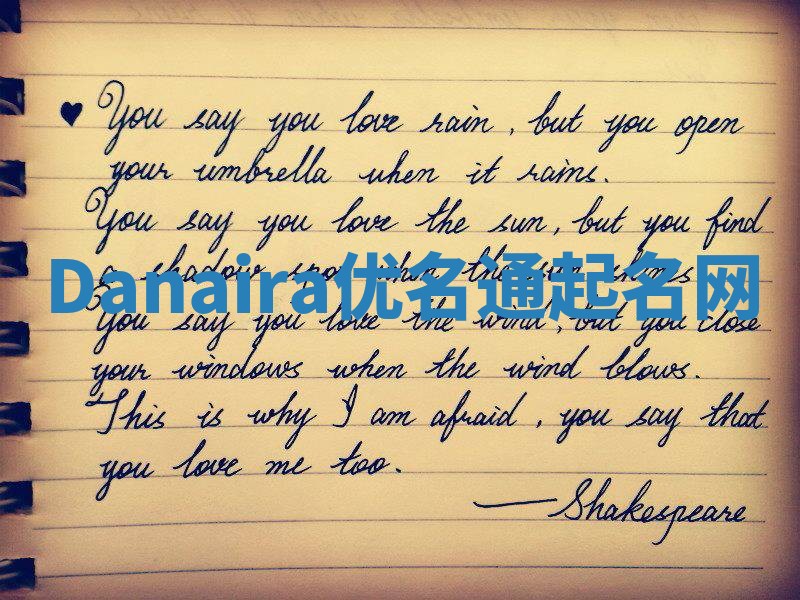 ♥ You say you love rain, but you open
your umbrella when it rains.
You say you love the sun, but you find
a shadow spot when the sun shines
Danaira优名通起名网
You say you love the wind, but you close
your windows when the wind blows.
This is why I am afraid, you say that
you love me too.
—Shakespeare